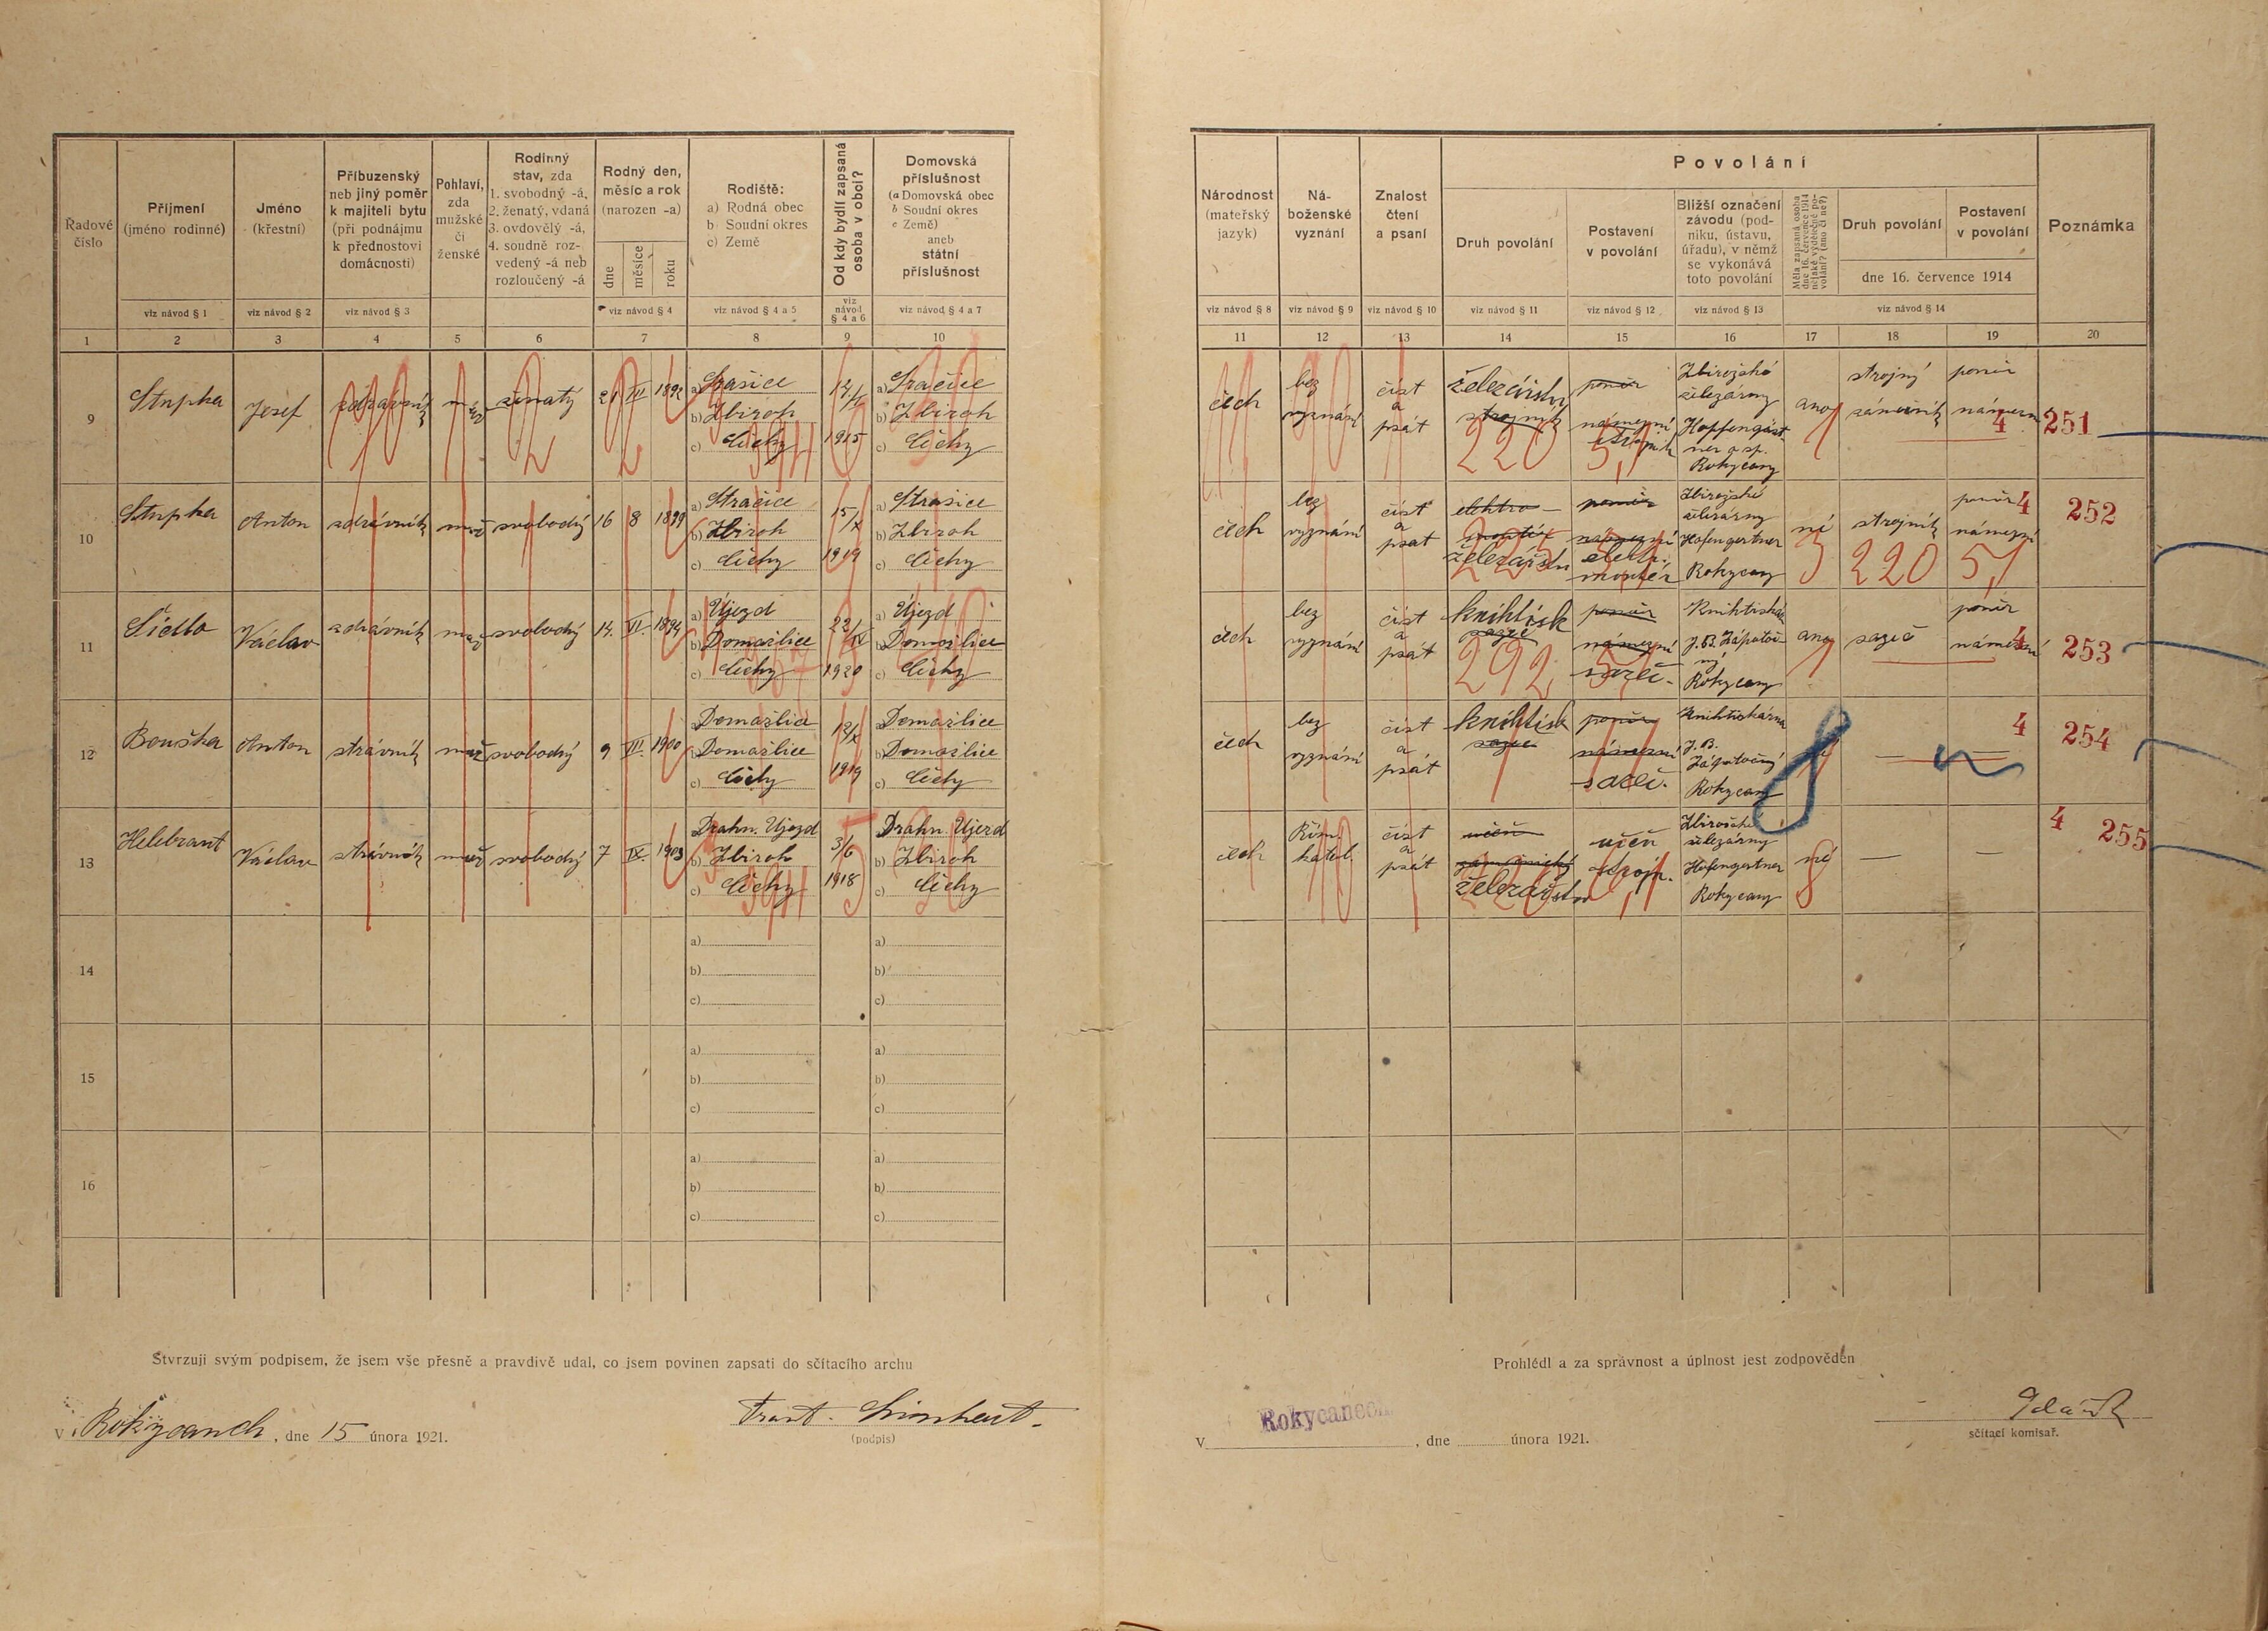 Řadové číslo
Příjmení
(jméno rodinné)
viz návod § 1
Jméno
(křestní)
viz návod § 2
Příbuzenský
neb jiný poměr
k majiteli bytu
(při podnájmu
k přednostovi
domácnosti)
viz návod § 3
Pohlaví,
zda
mužské
či
ženské
Rodinný
stav, zda
1. svobodný -á,
2. ženatý, vdaná
3. ovdovělý -á,
4. soudně roz-
vedený -á neb
rozloučený -á
Rodný den,
měsíc a rok
(narozen -a)
dne
měsíce
roku
viz návod § 4
Rodiště:
a) Rodná obec
b) Soudní okres
c) Země
viz návod § 4 a 5
Od kdy bydlí zapsaná
osoba v obci?
viz
návod
§ 4 a 6
Domovská
příslušnost
(a Domovská obec
b Soudní okres
c Země)
aneb
státní
příslušnost
viz návod § 4 a 7
Národnost
(mateřský
jazyk)
viz návod § 8
Ná-
boženské
vyznání
viz návod § 9
Znalost
čtení
a psaní
viz návod § 10
Povolání
Druh povolání
viz návod § 11
Postavení
v povolání
viz návod § 12
Bližší označení
závodu (pod-
niku, ústavu,
úřadu), v němž
se vykonává
toto povolání
viz návod § 13
Měla zapsaná osoba
dne 16. července 1914
nějaké výdělečné po-
volání? (ano či ne?)
Druh povolání
Postavení
v povolání
dne 16. července 1914
viz návod § 14
Poznámka
1 2 3 4 5 6 7 8 9 10 11 12 13 14 15 16 17 18 19 20
9 Stupka Josef ženatý 1892
a) Strašice
b) Zbiroh
c) Čechy
1915
a) Strašice
b) Zbiroh
c) Čechy
čech
bez
vyznání
číst
a
psát
železářství
strojník
220
poměr
námezní
Zbirožské
železárny
Hopfengärt
ner a sp.
Rokycany
ano
strojný
zámečník
poměr
námezní
4
251
10 Stupka Anton strávník muž svobodný 16 8 1899
a) Strašice
b) Zbiroh
c) Čechy
15/IX
1919
a) Strašice
b) Zbiroh
c) Čechy
čech
bez
vyznání
číst
a
psat
elektro-
montér
železářství
poměr
námezní
elektr.
montér
Zbirožské
železárny
Hofengertner
Rokycany
né
3
strojník
220
poměr
námezní
51
4
252
11 Šidlo Václav strávník muž svobodný 14. VI. 1894
a) Újezd
b) Domažlice
c) Čechy
22/IV
1920
a) Újezd
b) Domažlice
c) Čechy
čech
bez
vyznání
číst
a
psát
knihtisk
sazeč
292
poměr
námezní
sazeč.
Knihtiskár
J. B. Zápotoč-
ný
Rokycany
ano
sazeč
poměr
námezní
4
253
12 Bouška Anton strávník muž svobodný 9 VIII. 1900
a) Domažlice
b) Domažlice
c) Čechy
1919
a) Domažlice
b) Domažlice
c) Čechy
čech
bez
vyznání
číst
a
psát
knihtisk
sazeč
poměr
námezní
sazeč.
Knihtiskárna
J. B.
Zápotočný
Rokycany
8
—
4
254
13 Helebrant Václav strávník muž svobodný 7 IX. 1903
Drahn. Újezd
b) Zbiroh
c) Čechy
3/6
1918
Drahn. Újezd
b) Zbiroh
c) Čechy
čech
Řím.
katol.
číst
a
psát
učeň
zámečnický
železářství
učeň
strojn.
Zbirožské
železárny
Hofengertner
Rokycany
né
8
—
—
4
255
14
a)
b)
c)
a)
b)
c)
15
a)
b)
c)
a)
b)
c)
16
a)
b)
c)
a)
b)
c)
Stvrzuji svým podpisem, že jsem vše přesně a pravdivě udal, co jsem povinen zapsati do sčítacího archu
V Rokycanech, dne 15 února 1921.
(podpis)
Prohlédl a za správnost a úplnost jest zodpověděn
V Rokycanech, dne února 1921.
sčítací komisař.